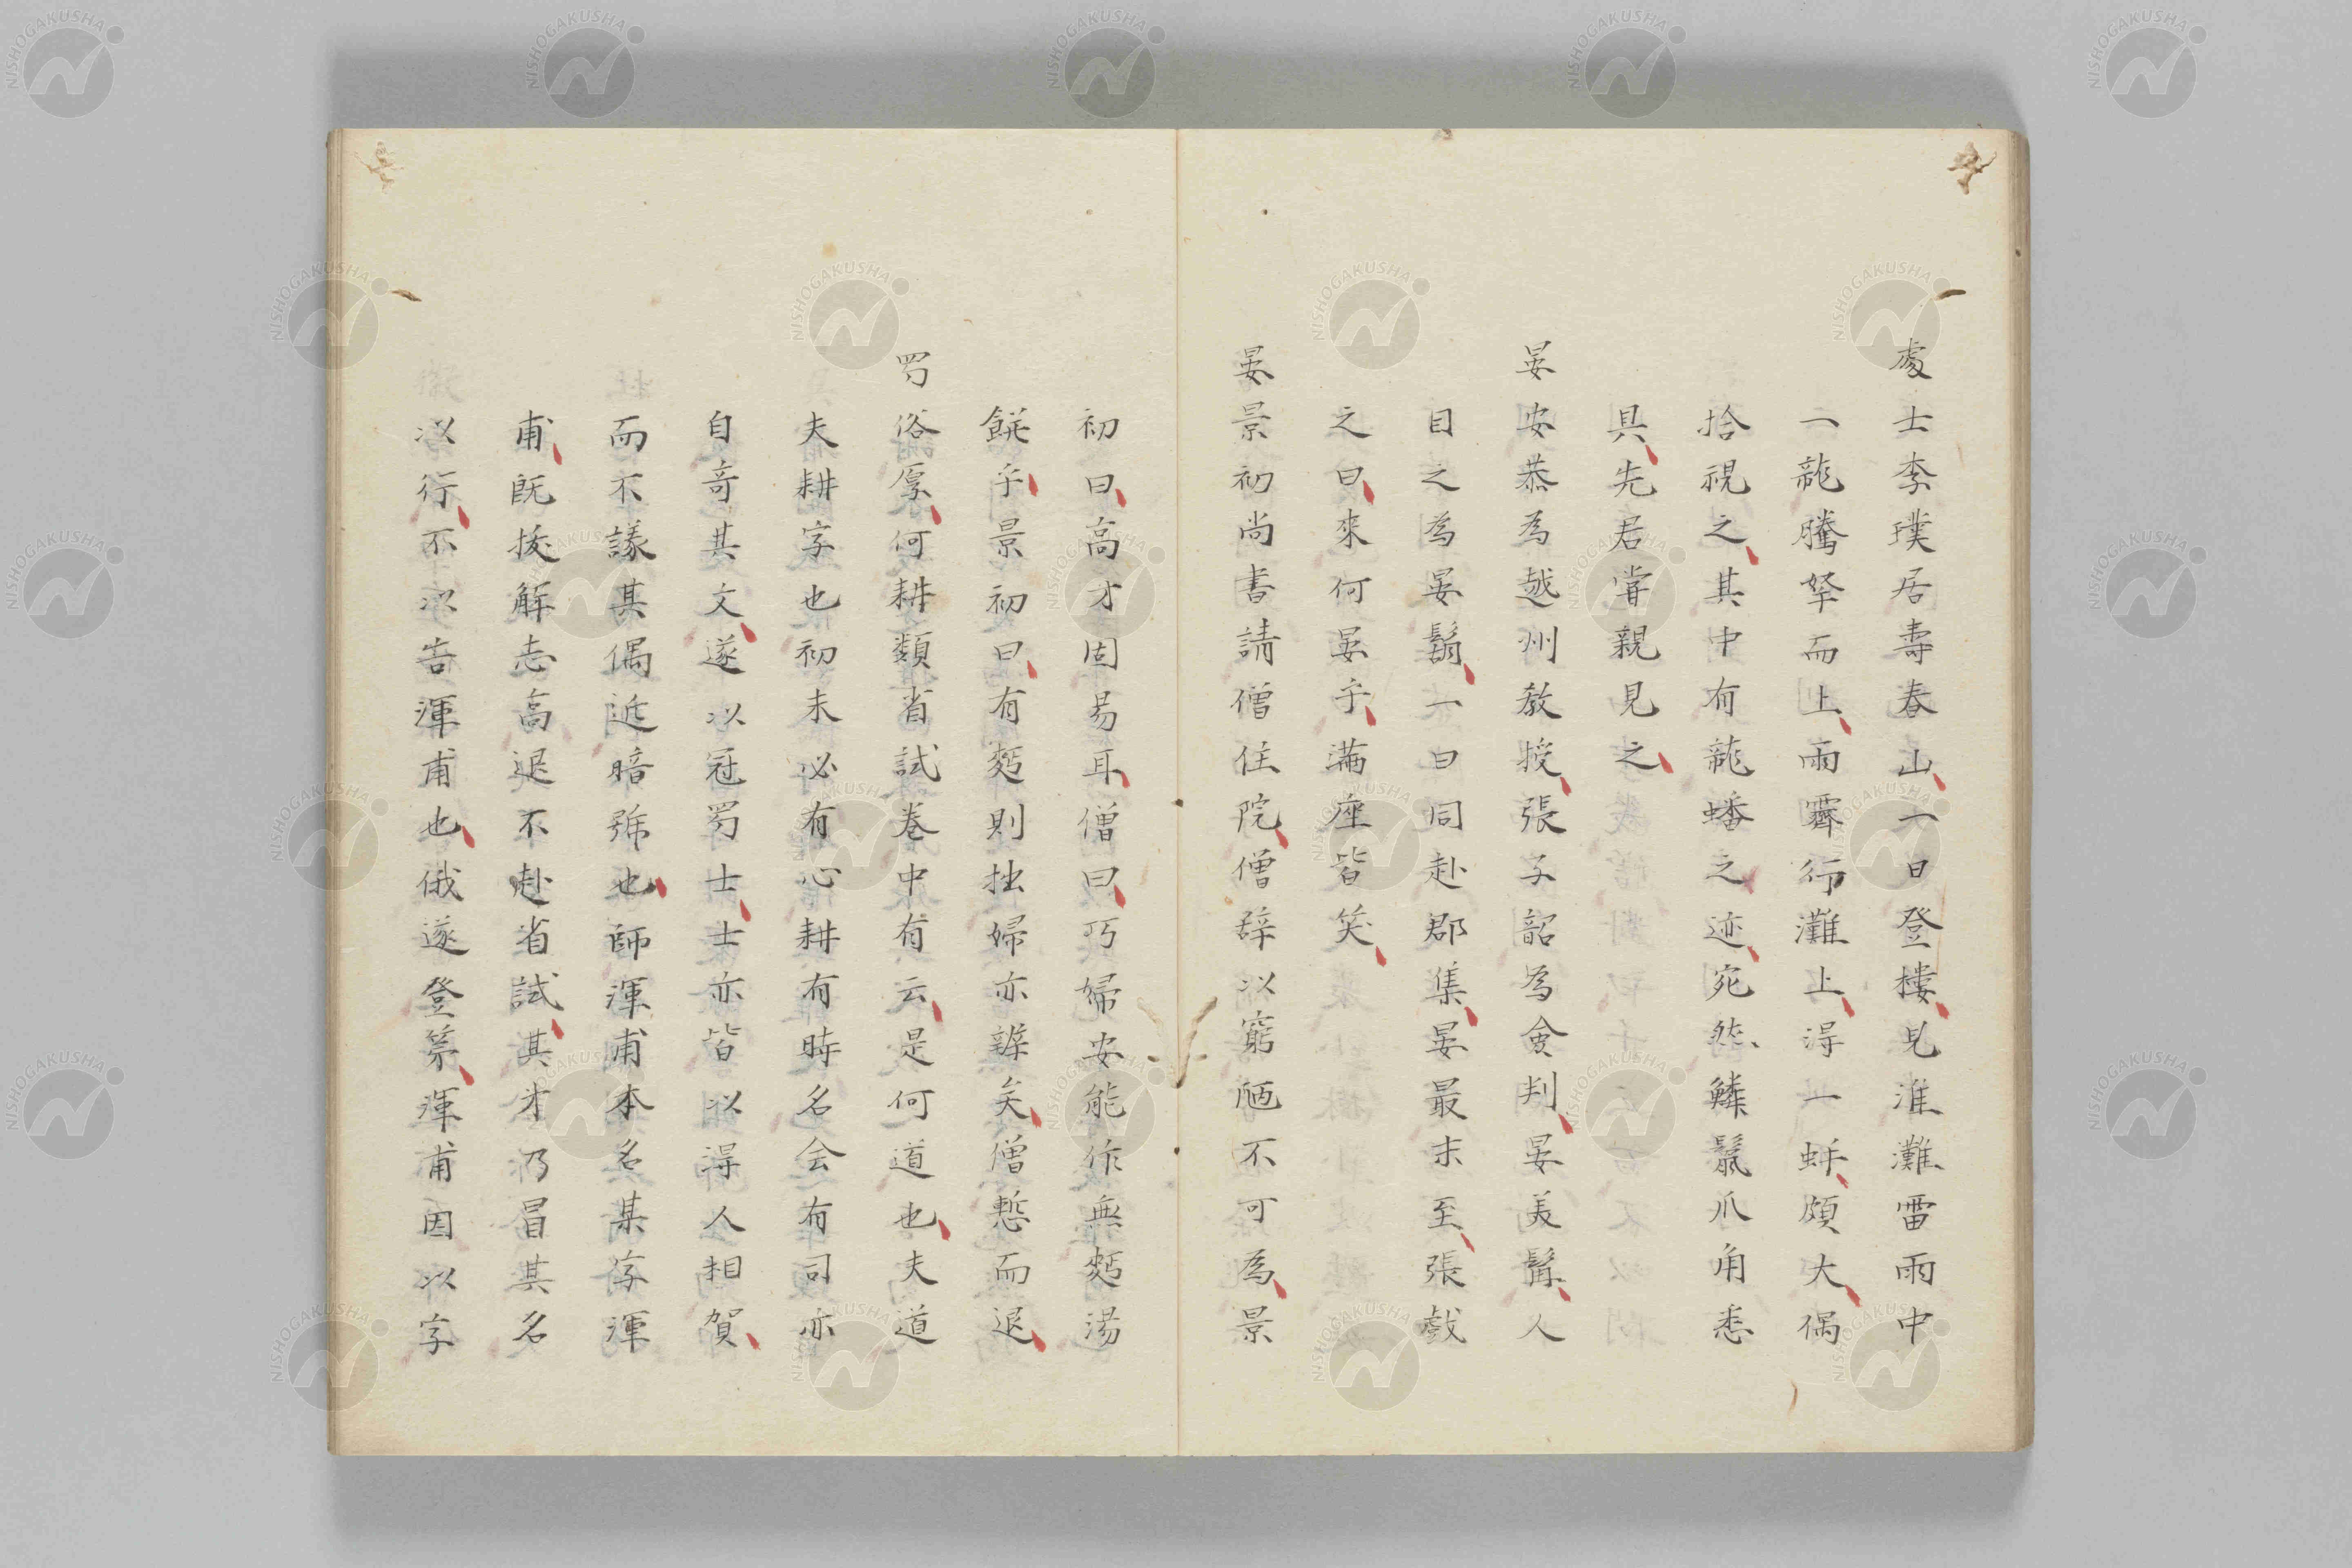 處士李璞居壽春山一日登樓見淮灘雷雨中
一龍騰拏而上雨霽行灘上得一蚌頗大偶
拾視之其中有龍蟠之迹宛然鱗鬣爪角悉
具先君嘗親見之
晏安恭為越州教授張子韶為僉判晏美髯人
目之為晏鬍一日同赴郡集晏最末至張戲
之曰來何晏乎滿座皆笑
晏景初尚書請僧住院僧辞以窮陋不可為景
初曰高才固易耳僧曰巧婦安能作無麪湯
餅乎景初曰有麪則拙婦亦辨矣僧慙而退
蜀俗厚何耕類省試卷中有云是何道也夫道
夫耕字也初未必有心耕有時名会有司亦
自奇其文遂以冠蜀士士亦皆以得人相賀
而不議其偶近暗號也師渾甫本名某字渾
甫既拔解志高退不赴省試其弟乃冒其名
以行不以告渾甫也俄遂登第渾甫因以字
NISHOGAKUSHA